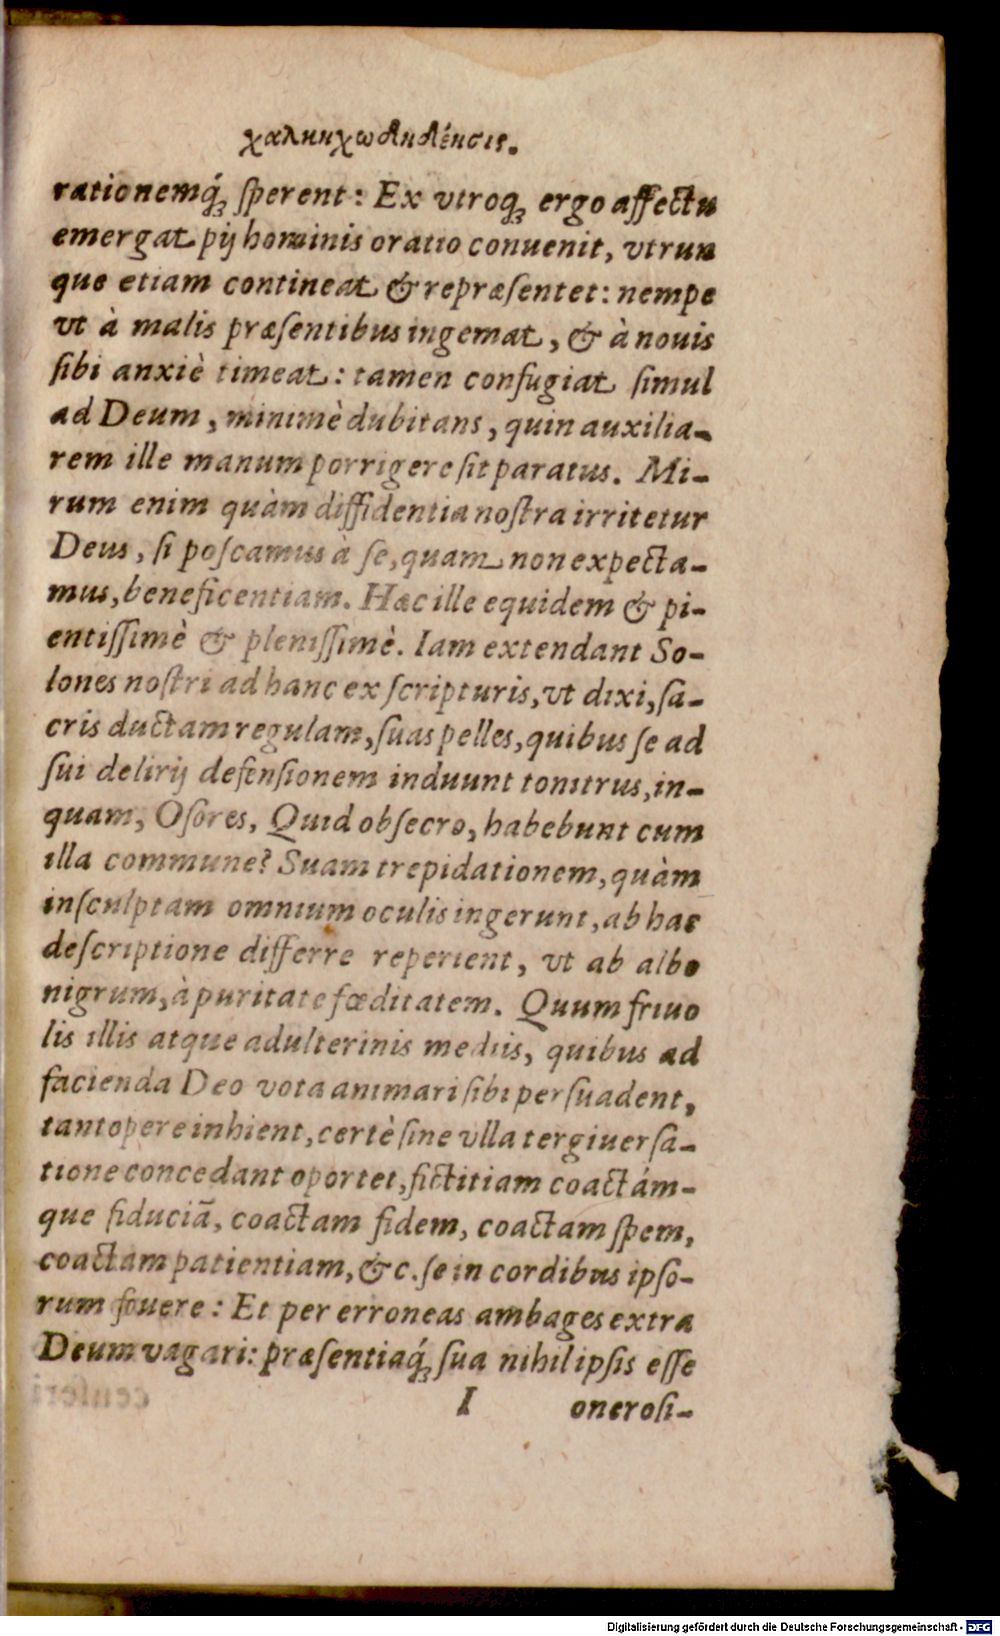 rationemq́; ſperent: Ex vtroq; ergo affectu
emergat pij hominis oratio conuenit, vtrun
que etiam contineat & repræſentet: nempe
vt à malis præſentibus ingemat, & à nouis
ſibi anxiè timeat: tamen confugiat ſimul
ad Deum, minimè dubitans, quin auxilia-
rem ille manum porrigere ſit paratus. Mi-
rum enim quàm diffidentia noſtra irritetur
Deus, ſi poſcamus à ſe, quam non expecta-
mus, beneficentiam. Hæc ille equidem & pi-
entiſſimè & pleniſſimè. Iam extendant So-
lones noſtri ad hanc ex ſcripturis, vt dixi, ſa-
cris ductam regulam, ſuas pelles, quibus ſe ad
ſui delirij defenſionem induunt tonitrus, in-
quam, Oſores. Quid obſecro, habebunt cum
illa commune? Suam trepidationem, quàm
inſculptam omnium oculis ingerunt, ab hac
deſcriptione differre reperient, vt ab albo
nigrum, à puritate fœditatem. Quum friuo
lis illis atque adulterinis mediis, quibus ad
facienda Deo vota animari ſibi perſuadent,
tantopere inhient, certè ſine vlla tergiuerſa-
tione concedant oportet, fictitiam coactám-
que fiduciã, coactam fidem, coactam ſpem,
coactam patientiam, &c. ſe in cordibus ipſo-
rum fouere: Et per erroneas ambages extra
Deum vagari: præſentiaq́; ſua nihil ipſis eſſe
I oneroſi-
Digitalisierung gefördert durch die Deutsche Forschungsgemeinschaft - DFG